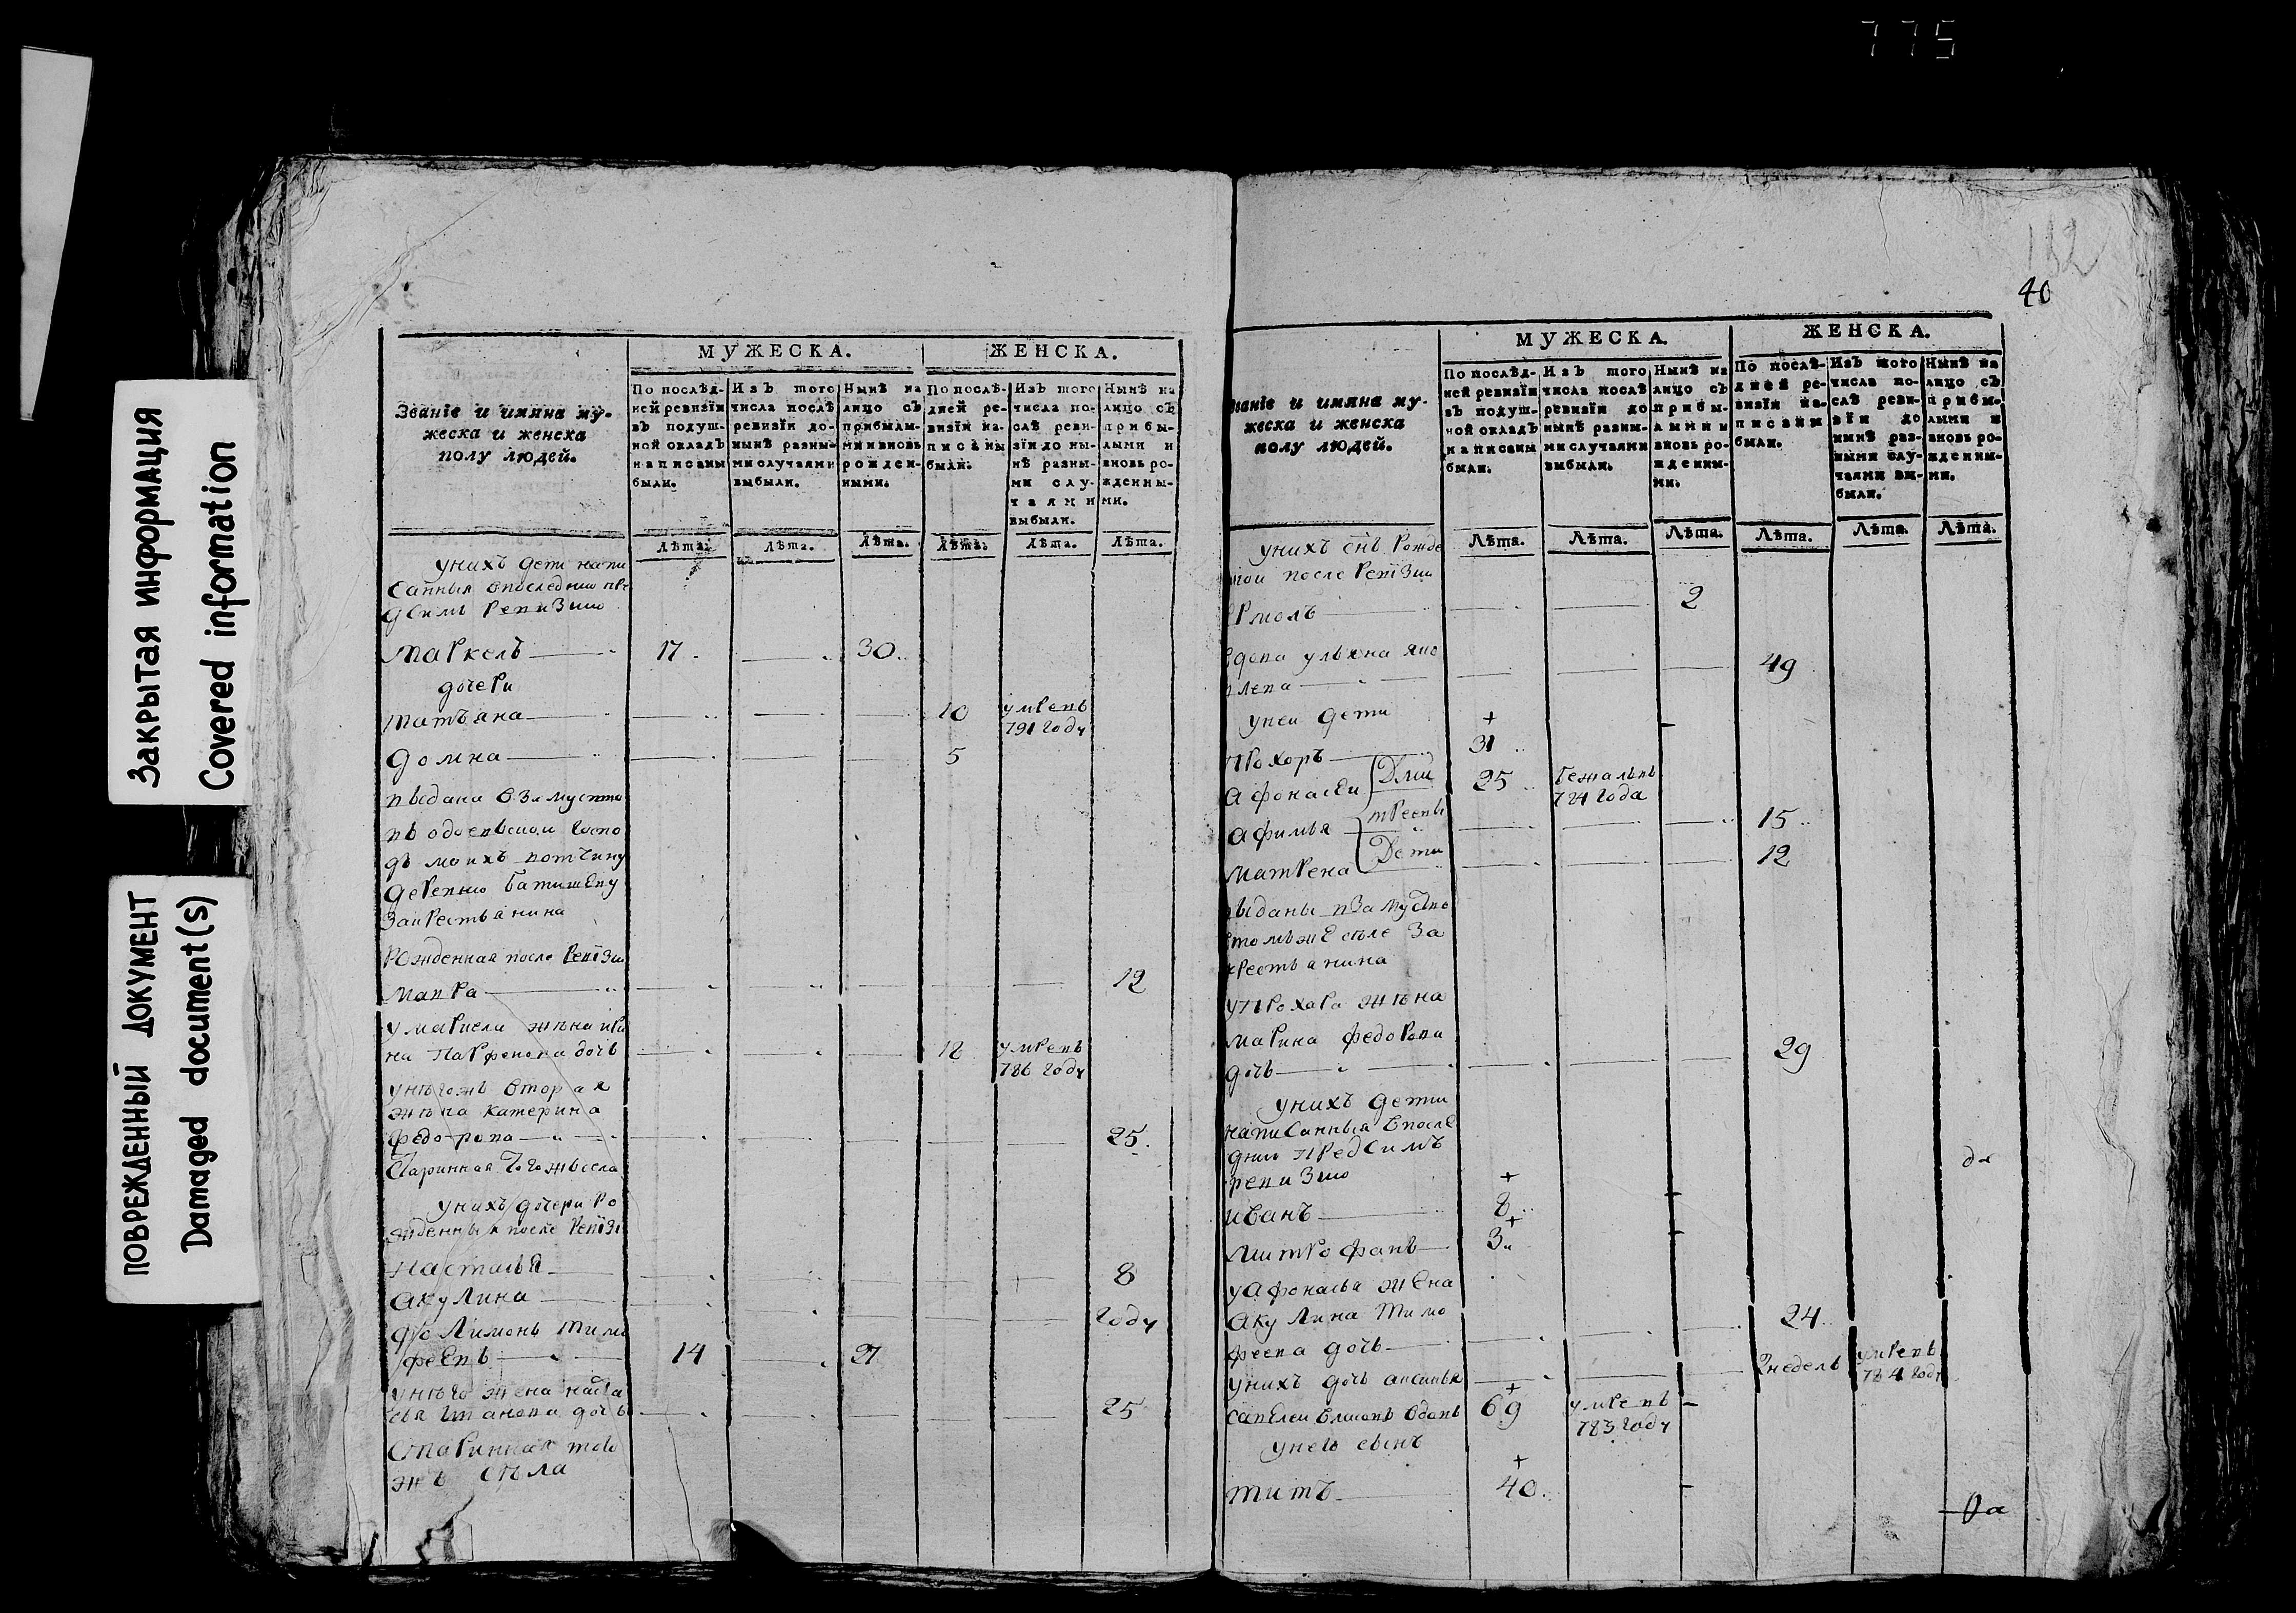 775
Закрытая информация
Covered information
ПОВРЕЖДЕННЫЙ ДОКУМЕНТ
Damaged document(s)
МУЖЕСКА.
ЖЕНСКА.
Званіе и имяна му-
жеска и женска
полу людей.
По послѣд-
ней ревизіи
въ подуш-
ной окладъ
написаны
были.
Изъ того
числа послѣ
ревизіи до-
нынѣ разны-
ми случаями
выбыли.
Нынѣ на
лицо съ
прибылы-
ми и вновь
рожден-
ными.
По послѣ-
дней ре-
визіи на-
писаны
были.
Изъ того
числа по-
слѣ реви-
зіи до ны-
нѣ разны-
ми слу-
чаями
выбыли.
Нынѣ на
лицо съ
прибы-
лыми и
вновь ро-
жденны-
ми.
Лѣта. Лѣта. Лѣта. Лѣта. Лѣта. Лѣта.
унихъ дети напи
санныя впоследнию пре
дсимъ ревизию
маркелъ 17 30
дочери
татьяна 10 умрепь
791 году
домна 5
выдана взамуство
господ
деревню
закрестьянина
рожденная после ревизии
мавра 12
умаркела жена ири
на парфенова дочь 18 умрепь
786 году
унегожъ вторая
жена катерина
федорова 25
старинная тогожъ села
унихъ дочери ро
жденныя после ревизи
настасья 8
акулина году
филимонъ тимо
феевъ 14 27
унего жена наста
сья дочь 25
старинная того
жъ села
40
МУЖЕСКА.
ЖЕНСКА.
Званіе и имяна му-
жеска и женска
полу людей.
По послѣд-
ней ревизіи
въ подуш-
ной окладъ
написаны
были.
Изъ того
числа послѣ
ревизіи до
нынѣ разны-
ми случаями
выбыли.
Нынѣ на
лицо съ
прибы-
лыми и
вновь ро-
жденны-
ми.
По послѣ-
дней ре-
визіи на-
писаны
были.
Изъ того
числа по-
слѣ реви-
зіи до
нынѣ раз-
ными слу-
чаями вы-
были.
Нынѣ на
лицо съ
прибы-
лыми и
вновь ро-
жденны-
ми.
Лѣта. Лѣта. Лѣта. Лѣта. Лѣта. Лѣта.
унихъ снъ рожде
ной после ревизии
ермолъ 2
вдова ульяна яко
влева 49
унеи дети
прохоръ 31
афонасеи 25 бежальвь
784 года
афимья 15
матрена дети 12
выданы взамуство
втомъже селе за
крестьянина
упрохара жена
марина федорова
дочь 29
унихъ дети
написанныя впосле
днию предсимъ
ревизию
иванъ 8
митрофанъ 3
уафонасья жена
акулина тимо
феева дочь 24
унихъ дочь аксинья 2 недель умрепь
784 году
савелеи вдовъ 69 умрепь
783 году
унего сынъ
титъ 40